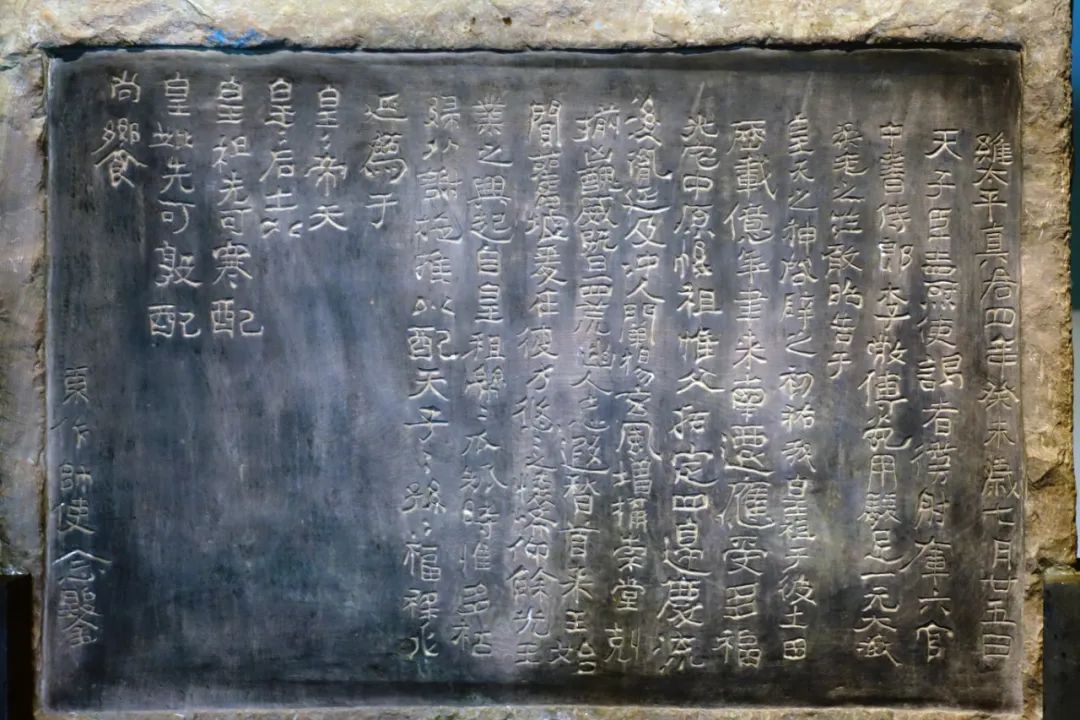 維太平真君四年癸未歲七月廿五日
天子臣燾使謁者僕射庫六官
中書侍郎李敞傅㝹用駿足一元大武
柔毛之牲敢昭告于
皇天之神啟辟之初祐我皇祖于彼土田
歷載億年聿來南遷應受多福
光宅中原惟祖惟父拓定四邊慶流
後胤延及沖人闡揚玄風增構崇堂剋
揃凶醜威暨四荒幽人忘遐稽首來王始
聞舊墟爰在彼方悠〻之懷希仰餘光王
業之興起自皇祖綿〻瓜瓞時惟多祜
歸以謝施推以配天子〻孫〻福祿永
延薦于
皇〻帝天
皇〻后土
皇祖先可寒配
皇妣先可敦配
尚饗
東作帥使念鑿